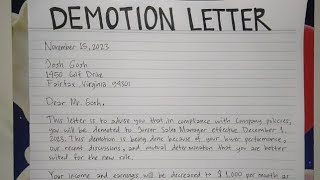 DEMOTION LETTER
November 15, 2023
Josh Gosh
1450 Golf Drive
Fairfax, Virginia 94301
Dear Mr. Gosh,
This letter is to advise you that in compliance with company policies,
you will be demoted to Junior Sales Manager effective December 1,
2023. This demotion is being done because of your lower performance,
our recent discussions, and mutual determination that you are better
suited for the new role.
Your income and earnings will be decreased to $1,000 per month as